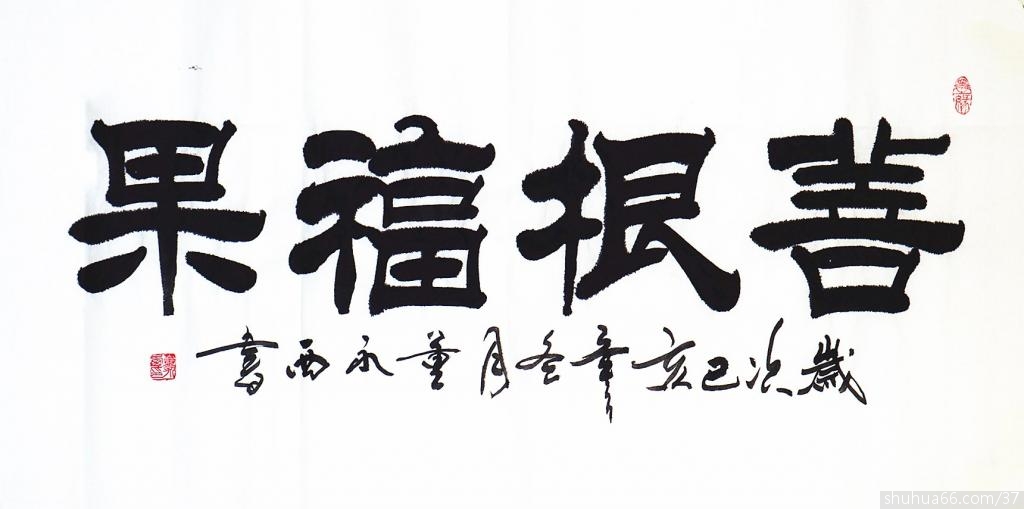 善根福果
歲次己亥年冬月董永西書
shuhua66.com/37